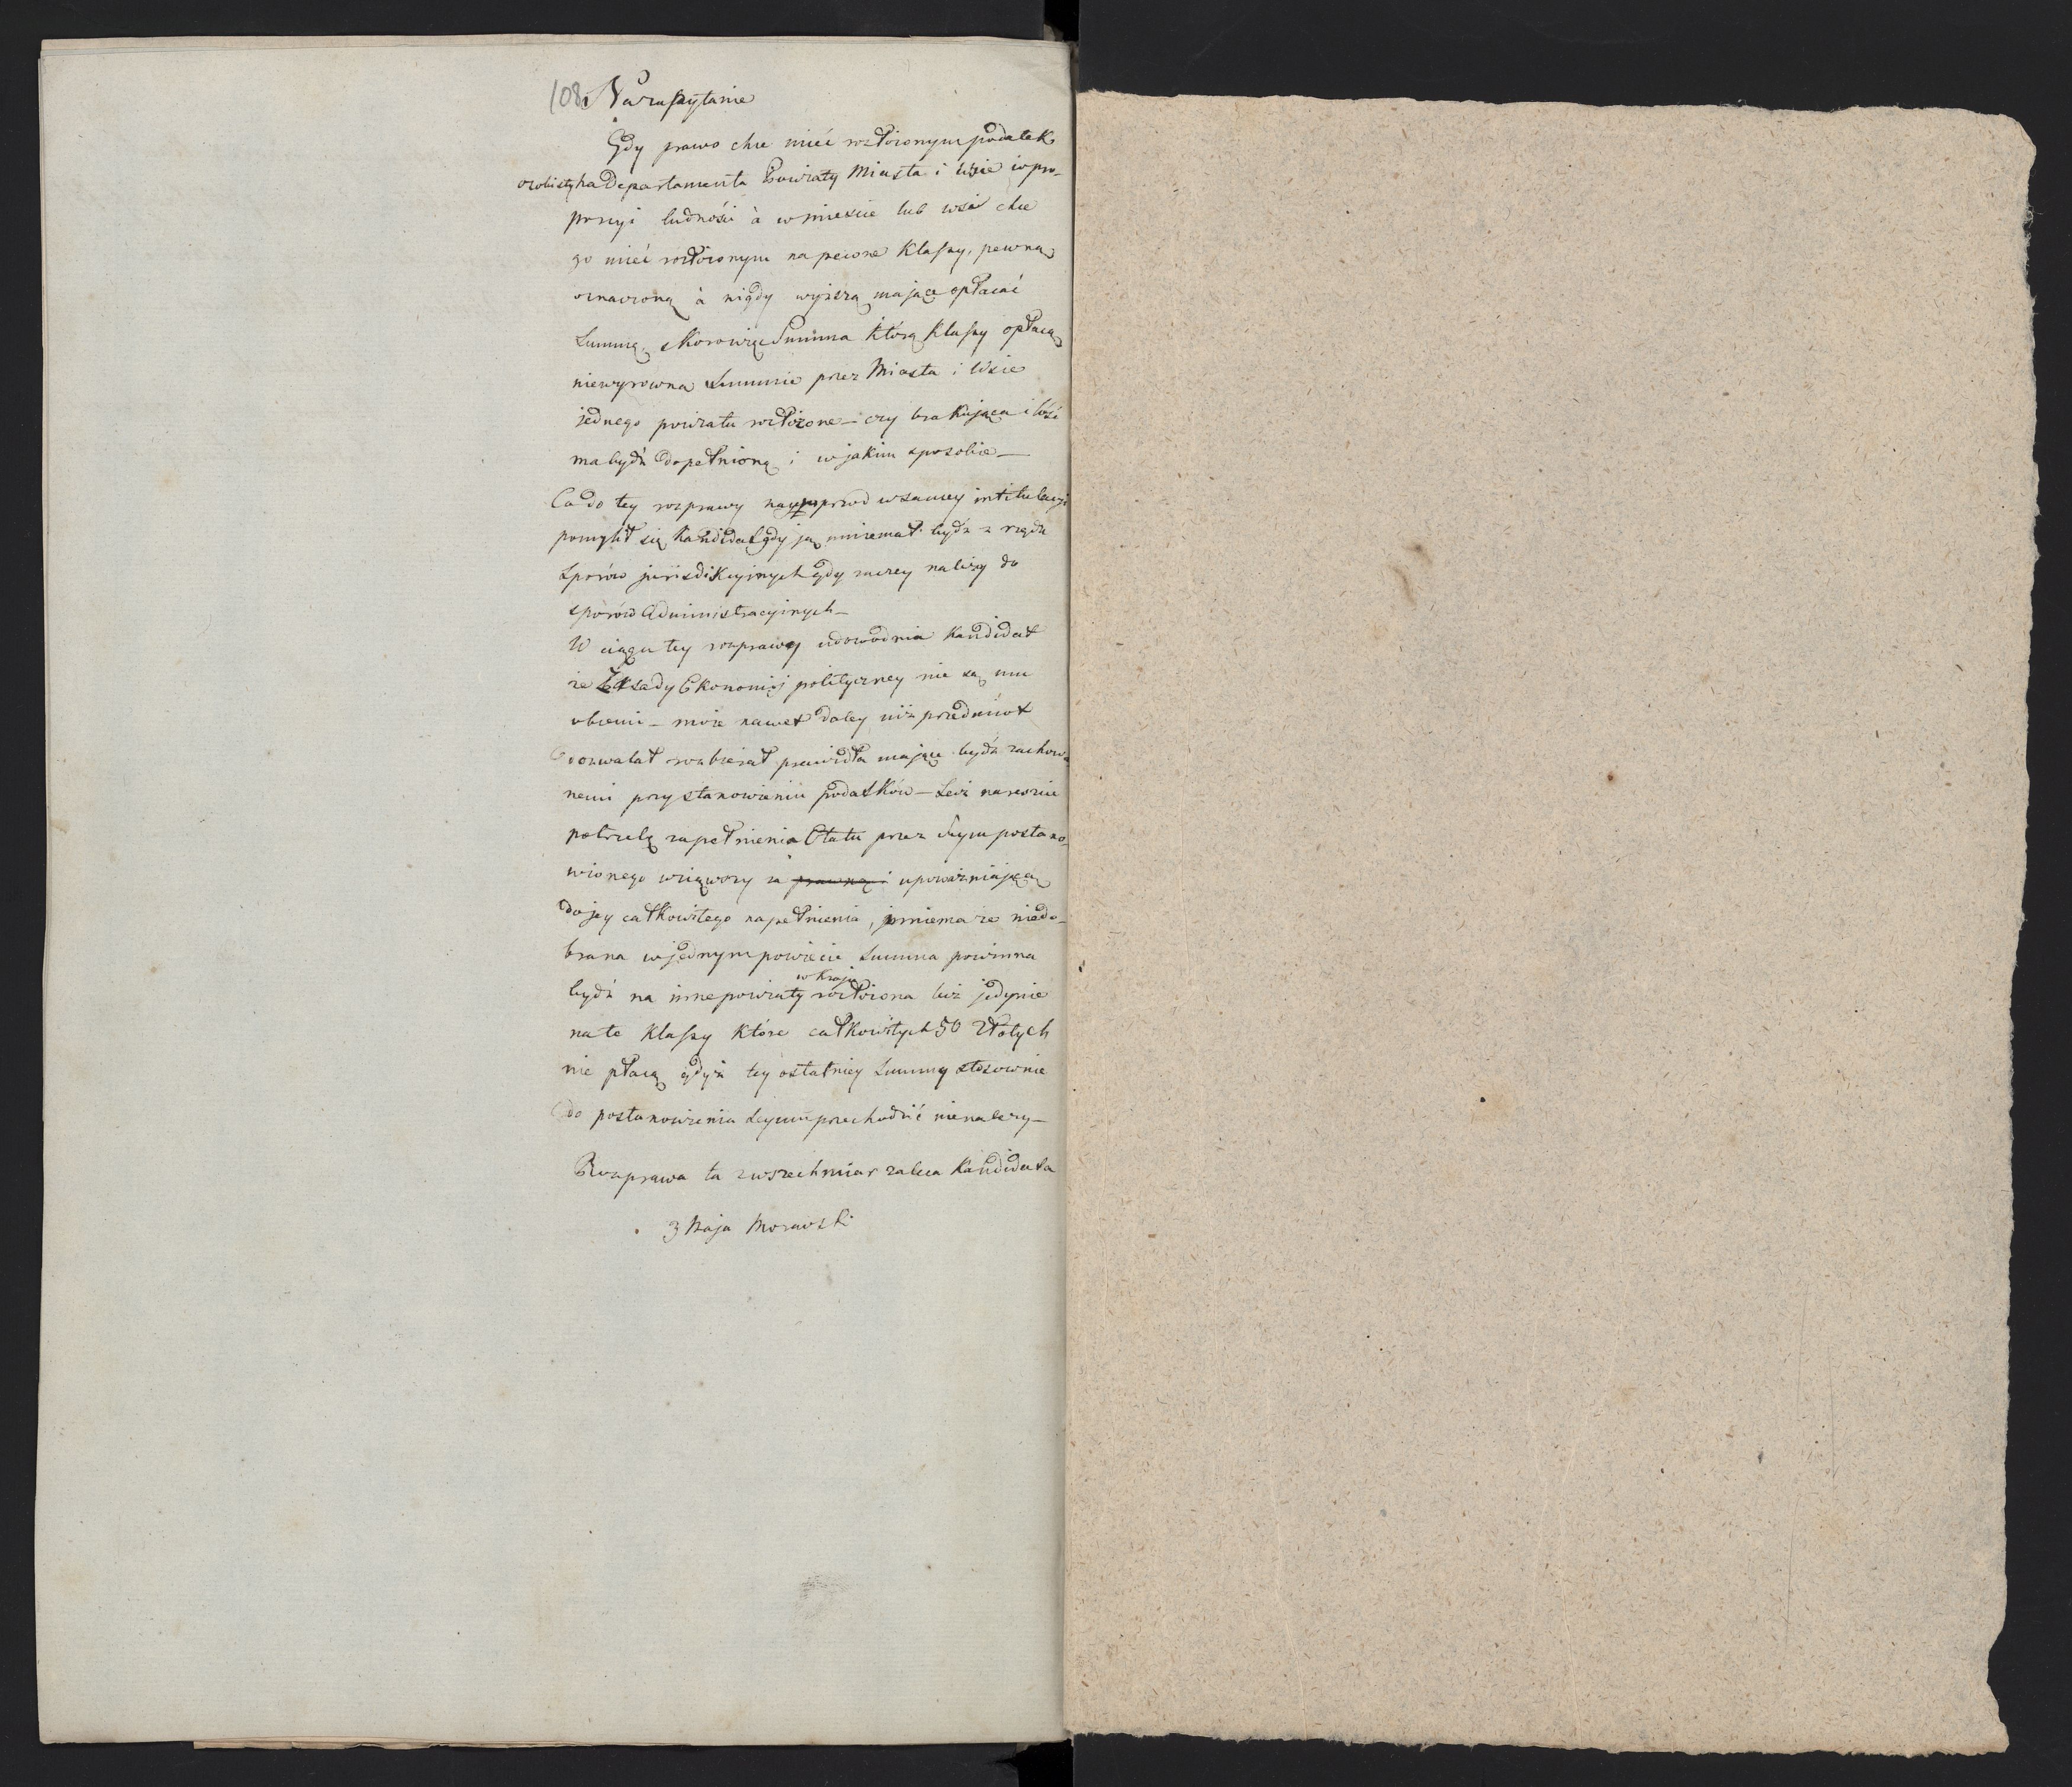 108. Na zapytanie
Gdy prawo chce mieć rozłożonym podatek
osobisty na Departamenta Powiaty Miasta i Wsie w pro-
porcyi ludności à w mieście lub wsi chce
go mieć rozłożonym na pewne klassy, pewną
oznaczoną à nigdy wyższą mające opłacać
Summę, skoro więc Summa którą klassy opłacą
niewyrowna Summie przez Miasta i Wsie
jednego powiatu rozłożone – czy brakująca ilość
ma bydź dopełnioną i w jakim sposobie –
Co do tey rozprawy nayprzod w samey intitulacyi
pomylił się Kandidat gdy ją mniemał bydź z rzędu
sporów jurisdikcyinych gdy raczey należy do
sporów Administracyinych –
W ciągu tey rozprawy udowodnia Kandidat
że Zasady Ekonomij polityczney nie są mu
obcemi – może nawet daley niż przedmiot
dozwalał rozbierał prawidła mające bydź zachowa-
nemi przy stanowieniu podatków – Lecz nareszcie
potrzebę zapełnienia Etatu przez Seym postano-
wionego wziąwszy za prawną i upoważniającą
do jey całkowitego napełnienia, mniema że niedo-
brana w jednym powiecie Summa powinna
bydź na inne powiaty w kraju rozłożona lecz jedynie
na te klassy które całkowitych 50 Złotych
nie płacą gdyż tey ostatniey Summy stosownie
do postanowienia Seymu przechodzić nienależy –
Rozprawa ta zwszechmiar zaleca Kandidata
3 Maja Morawski